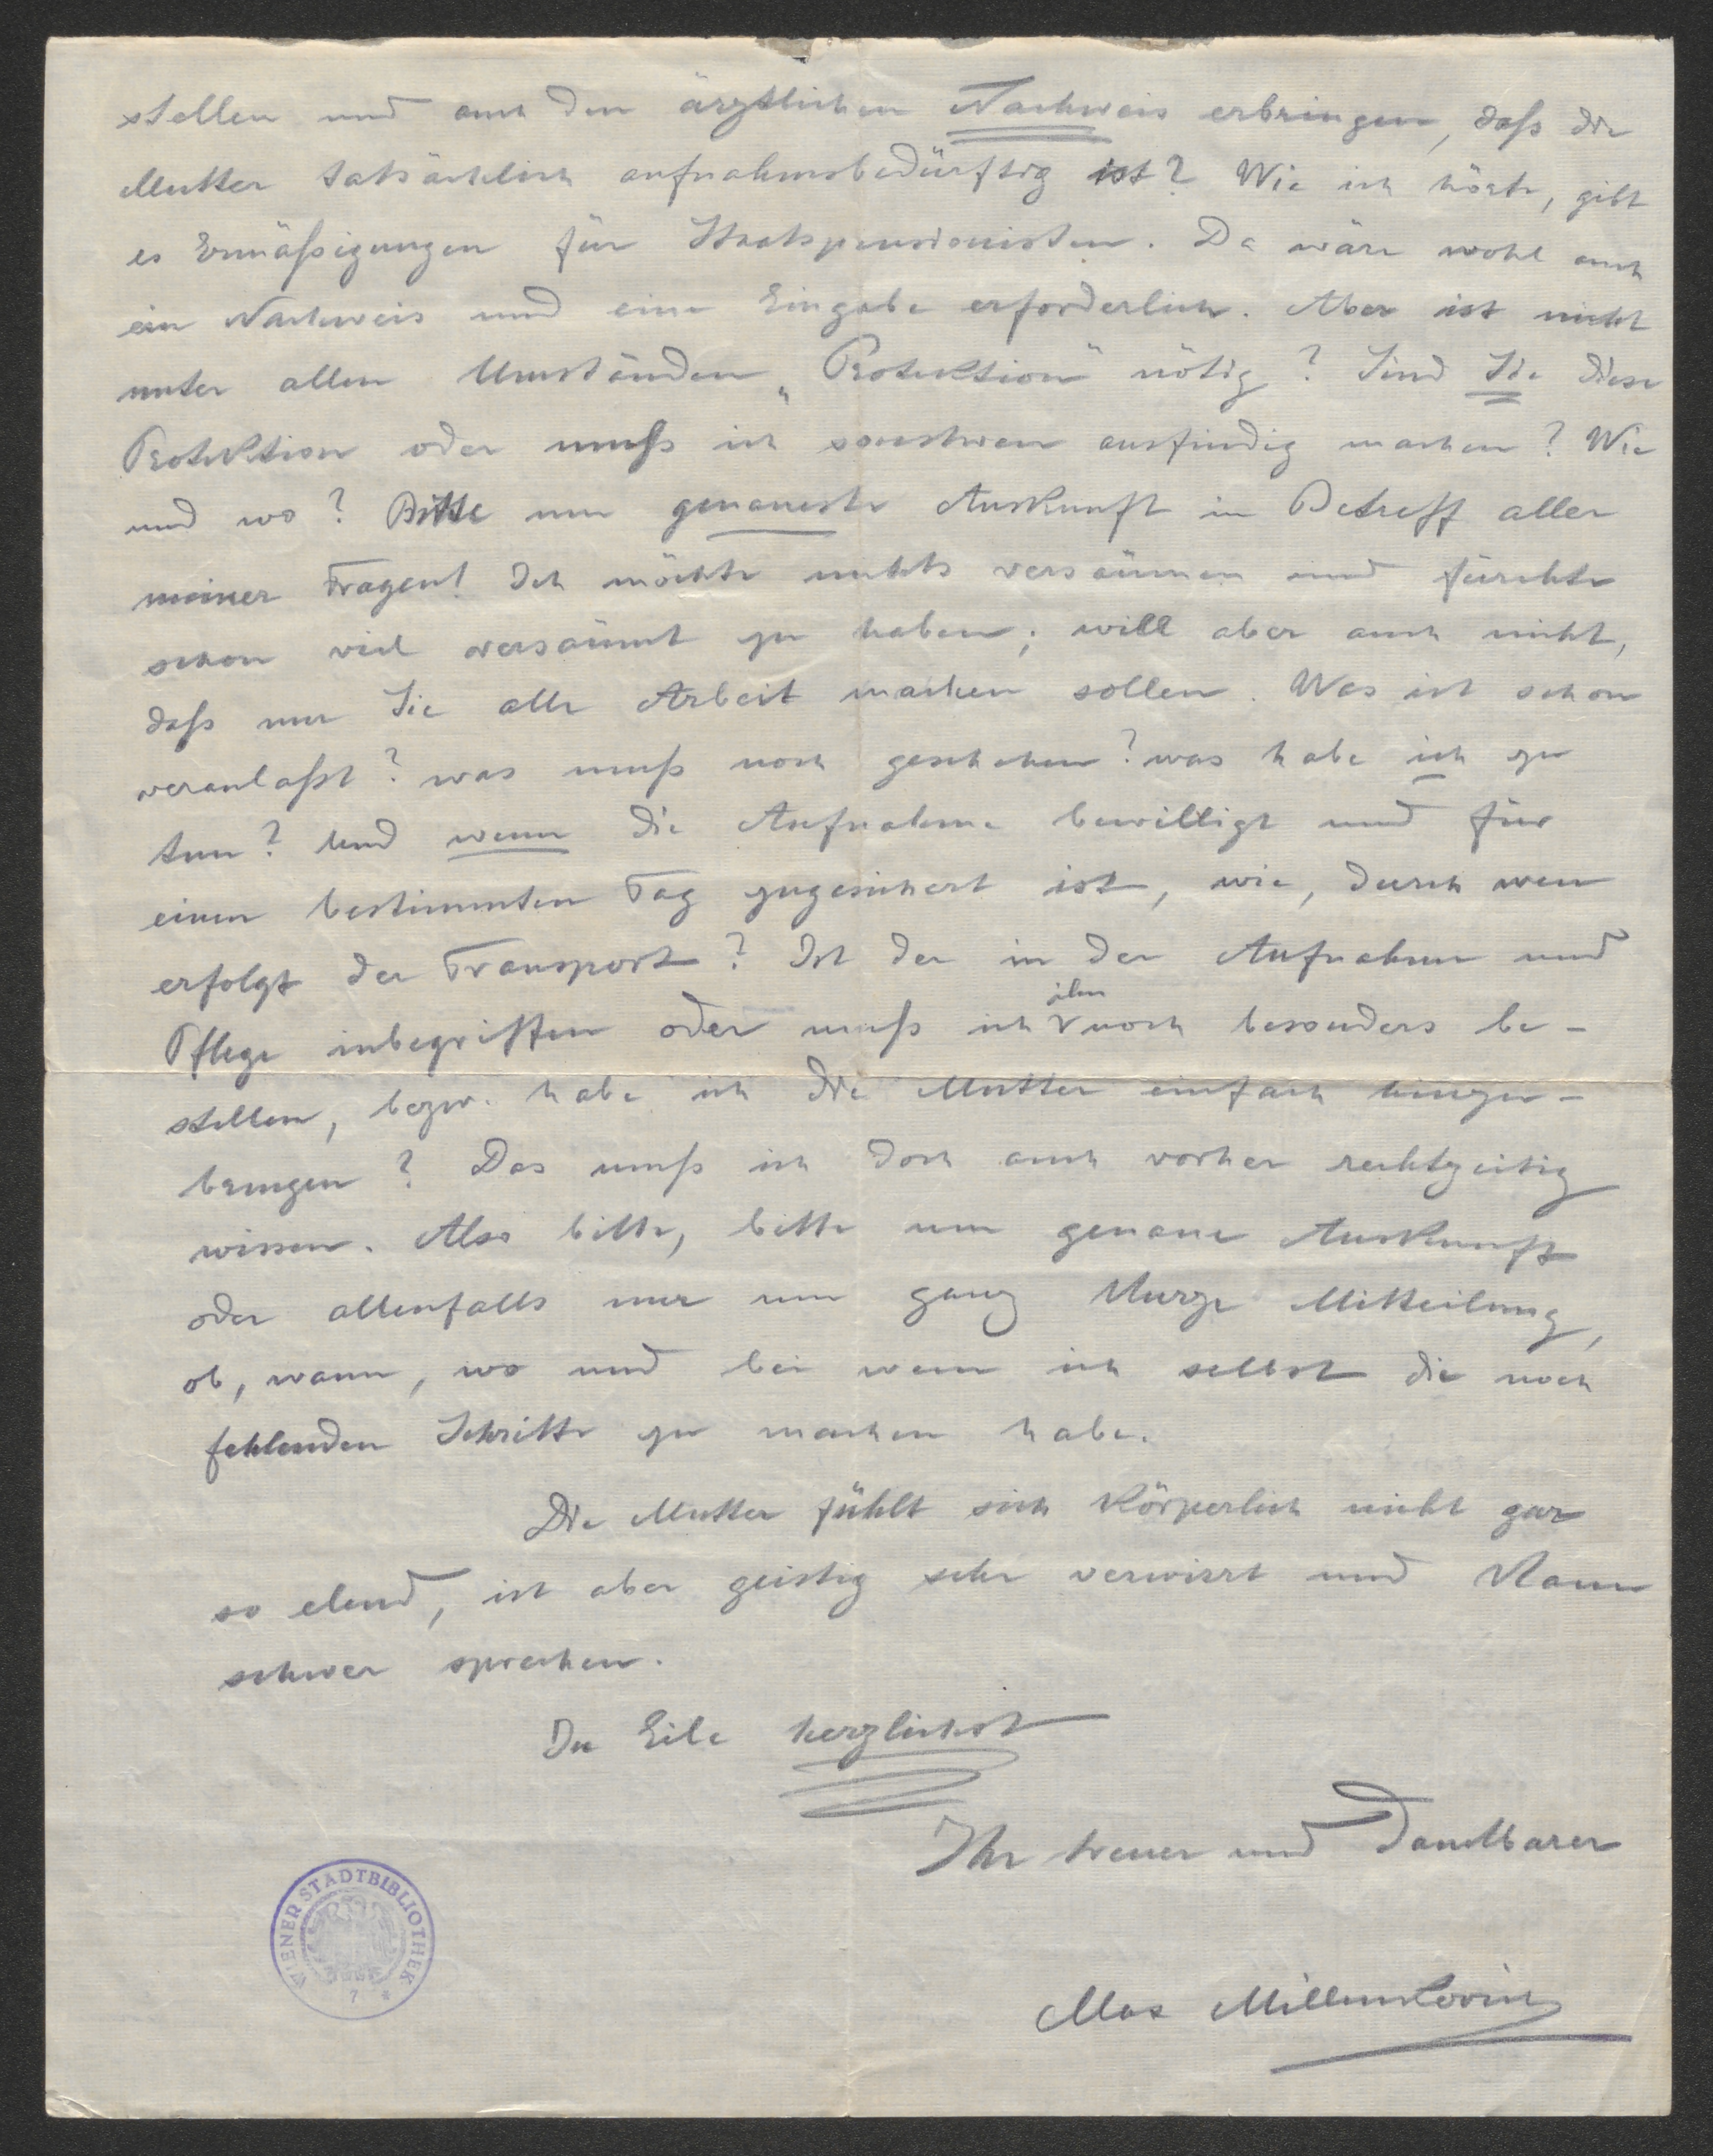 stellen und auch den ärztlichen Nachweis erbringen, daß die
Mutter tatsächlich aufnahmsbedürftig ist? Wie ich hörte, gibt
es Ermäßigungen für Staatspensionisten. Da wäre wohl auch
ein Nachweis und eine Eingabe erforderlich. Aber ist nicht
unter allen Umständen „Protektion" nötig? Sind Sie diese
Protektion oder muß ich sonstwen ausfindig machen? Wie
und wo? Bitte um genaueste Auskunft in Betreff aller
meiner Fragen! Ich möchte nichts versäumen und fürchte
schon viel versäumt zu haben; will aber auch nicht,
daß nur Sie alle Arbeit machen sollen. Was ist schon
veranlaßt? was muß noch geschehen? was habe ich zu
tun? Und wenn die Aufnahme bewilligt und für
einen bestimmten Tag zugesichert ist, wie, durch wen
erfolgt der Transport? Ist der in der Aufnahme und
ihn
Pflege inbegriffen oder muß ich noch besonders be-
stellen, bezw. habe ich die Mutter einfach hinzu-
bringen? Das muß ich doch auch vorher rechtzeitig
wissen. Also bitte, bitte um genaue Auskunft
oder allenfalls nur um ganz kurze Mitteilung,
ob, wann, wo und bei wem ich selbst die noch
fehlenden Schritte zu machen habe.
Die Mutter fühlt sich körperlich nicht gar
so elend, ist aber geistig sehr verwirrt und kann
schwer sprechen.
In Eile herzlichst
Ihr treuer und dankbarer
Max Millenkovich
WIENER STADTBIBLIOTHEK
7 *